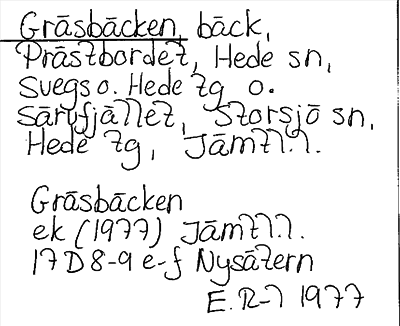 Gräsbäcken, bäck,
Prästbordet, Hede sn,
Svegs o. Hede tg o.
Särvfjället, Storsjö sn,
Hede tg, Jämtl.l.
Gräsbäcken
ek (1977) Jämtl.l.
17D 8-9 e-f Nysätern
E. R-l 1977